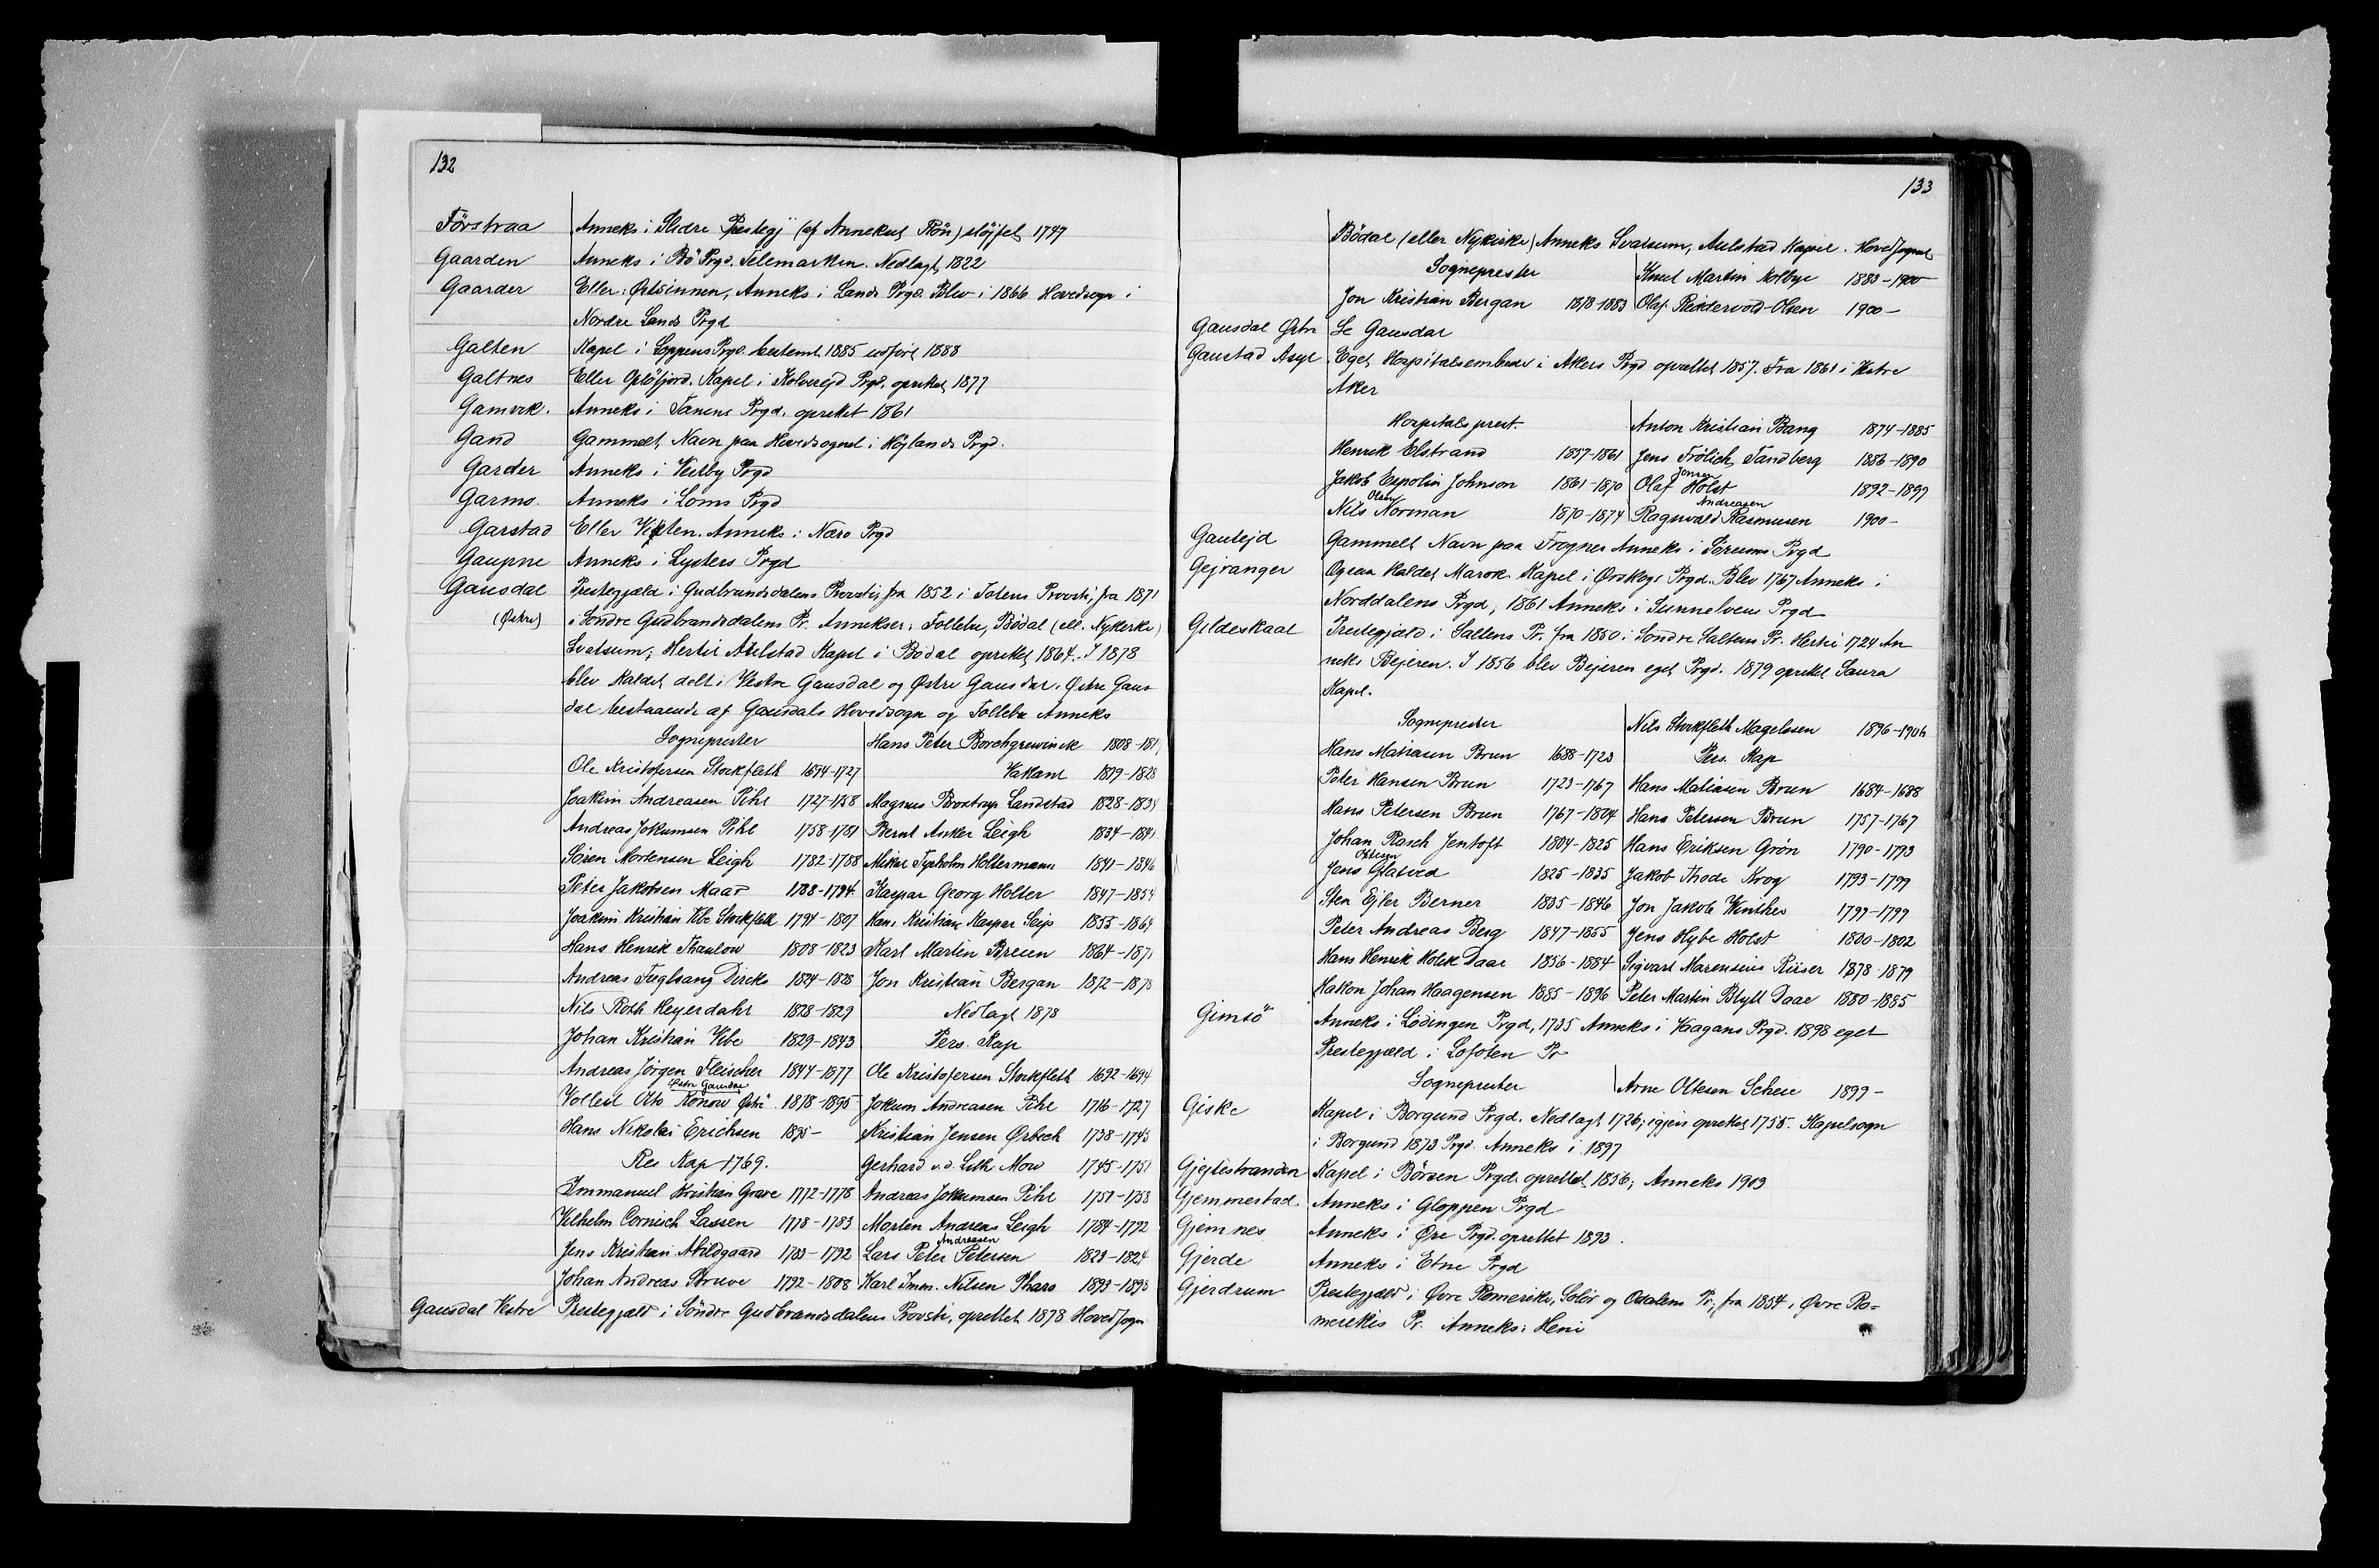 132
Förstraa Anneks i Slidre Prestegj (af Annekset Rön) slöjfet 1747
Gaarden Anneks i Bö Prgd. Telemarken. Nedlagt 1822
Gaarder Eller: Östsinnen, Anneks i Lands Prgd. Blev i 1866 Hovedsogn i
Nordre Lands Prgd
Galten Kapel i Loppens Prgd. bestemt 1885 udført 1888
Galtnes Eller Oplöfjord. Kapel i Kolvereid Prgd. oprettet 1877
Gamvik. Anneks i Tanens Prgd. oprettet 1861
Gand Gammelt Navn paa Hovedsognet i Höjlands Prgd.
Garder Anneks i Vestby Prgd
Garmo. Anneks i Loms Prgd
Garstad Eller Vikten. Anneks i Nærö Prgd
Gaupne Anneks i Lysters Prgd
Gausdal Prestegjæld i Gudbrandsdalens Provsti, fra 1852 i Totens Provsti, fra 1871
(Østre) i Søndre Gudbrandsdalens Pr. Annekser: Follebu, Bödal (ell. Nykirke)
Svatsum; Hertil Aulstad Kapel i Bödal oprettet 1864. I 1878
blev Kaldet delt i Vestre Gausdal og Østre Gausdal. Østre Gaus
dal bestaaende af Gausdals Hovedsogn og Follebu Anneks
Sogneprester Hans Peter Borchgrewinck 1808-181
Ole Kristofersen Stockfleth 1694-1727 Vakant 1819-1828
Joakim Andreasen Pihl 1727-1758 Magnus Brostrup Landstad 1828-1834
Andreas Jokumsen Pihl 1758-1781 Bernt Anker Leigh 1834-1841
Sören Mortensen Leigh 1782-1788 Mikal Tyrholm Holtermann 1841-1846
Peter Jakobsen Maas 1788-1794 Kaspar Georg Holter 1847-1854
Joakim Kristian Vibe Stockfleth 1794-1807 Hans Kristian Kaspar Seip 1855-1864
Hans Henrik Thaulow 1808-1823 Karl Martin Breien 1864-1871
Andreas Fuglsang Dircks 1824-1828 Jon Kristian Bergan 1872-1878
Nils Roth Heyerdahl 1828-1829 Nedlagt 1878
Johan Kristian Vibe 1829-1843 Pers. Kap
Andreas Jörgen Fleischer 1844-1877 Ole Kristofersen Stockfleth 1692-1694
Østre Gausdal
Vollert Otto Konow Østre 1878-1895 Jokum Andreasen Pihl 1716-1727
Hans Nikolai Erichsen 1895- Kristian Jensen Ørbech 1738-1745
Res Kap 1769. Gerhard v.d. Lith Mow 1745-1751
Immanuel Kristian Grave 1772-1778 Andreas Jokumsen Pihl 1751-1758
Vilhelm Cornisch Lassen 1778-1783 Morten Andreas Leigh 1784-1792
Andreasen
Jens Kristian Abildgaard 1783-1792 Lars Peter Petersen 1823-1824
Johan Andreas Struve 1792-1808 Karl Imm. Nilsen Pharo 1893-1895
Gausdal Vestre Prestegjæld i Söndre Gudbrandsdalens Provsti, oprettet 1878 Hovedsogn
133
Bödal (eller Nykirke) Anneks Svatsum, Aulstad Kapel. Hovedsognet
Sogneprester Knut Martin Kolbye 1883-1900
Jon Kristian Bergan 1878-1883 Olaf Riddervold-Olsen 1900-
Gausdal Østre Se Gausdal
Gaustad Asyl Eget Hospitalsembede i Akers Prgd oprettet 1857. Fra 1861 i Vestre
Aker
Hospitalsprest Anton Kristian Bang 1874-1885
Henrik Elstrand 1857-1861 Jens Frölich Tandberg 1886-1890
Jensen
Jakob Espolin Johnson 1861-1870 Olaf Holst 1892-1899
Olsen Andreasen
Nils Norman 1870-1874 Ragnvald Rasmusen 1900-
Gauteid Gammelt Navn paa Frogner Anneks i Sörums Prgd
Gejranger Ogsaa Kaldet Marok. Kapel i Ørskogs Prgd. Blev 1767 Anneks i
Norddalens Prgd, 1861 Anneks i Sunnelvens Prgd
Gildeskaal Prestegjæld i Saltens Pr. fra 1860 i Söndre Saltens Pr. Hertil 1724 An
neks Bejeren. I 1856 blev Bejeren eget Prgd. 1879 oprettet Saura
Kapel.
Sogneprester Nils Stockfleth Magelssen 1896-1906
Hans Matiasen Brun 1688-1723 Pers. Kap
Peter Hansen Brun 1723-1767 Hans Matiasen Brun 1684-1688
Hans Petersen Brun 1767-1804 Hans Petersen Brun 1757-1767
Johan Rasch Jentoft 1804-1825 Hans Eriksen Grön 1790-1793
Ottesen
Jens Glatved 1825-1835 Jakob Thode Krog 1793-1799
Sten Ejler Berner 1835-1846 Jon Jakob Winther 1799-1799
Peter Andreas Berg 1847-1855 Jens Hybe Holst 1800-1802
Hans Henrik Holck Daae 1856-1884 Sigvart Marensius Riiser 1878-1879
Hakon Johan Haagensen 1885-1896 Peter Martin Blytt Daae 1880-1885
Gimsö Anneks i Lödingen Prgd, 1735 Anneks i Vaagans Prgd. 1898 eget
Prestegjæld i Lofoten Pr
Sogneprester Arne Oltesen Scheie 1899-
Giske Kapel i Borgund Prgd. Nedlagt 1726; igjen oprettet 1755. Kapelsogn
i Borgund 1873 Prgd. Anneks i 1897
Gjejtestranden Kapel i Börsen Prgd. oprettet 1856; Anneks 1903
Gjemmestad Anneks i Gloppen Prgd
Gjemnes Anneks i Øre Prgd. oprettet 1893.
Gjerde Anneks i Etne Prgd
Gjerdrum Prestegjæld i Øvre Romerike, Solör og Odalens Pr, fra 1854 i Øvre Ro=
merikes Pr. Anneks: Heni